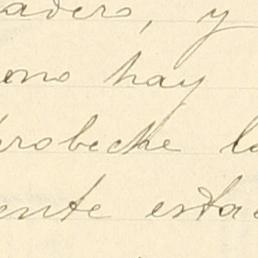 adero, y
ono hay
robeche la
ente esta